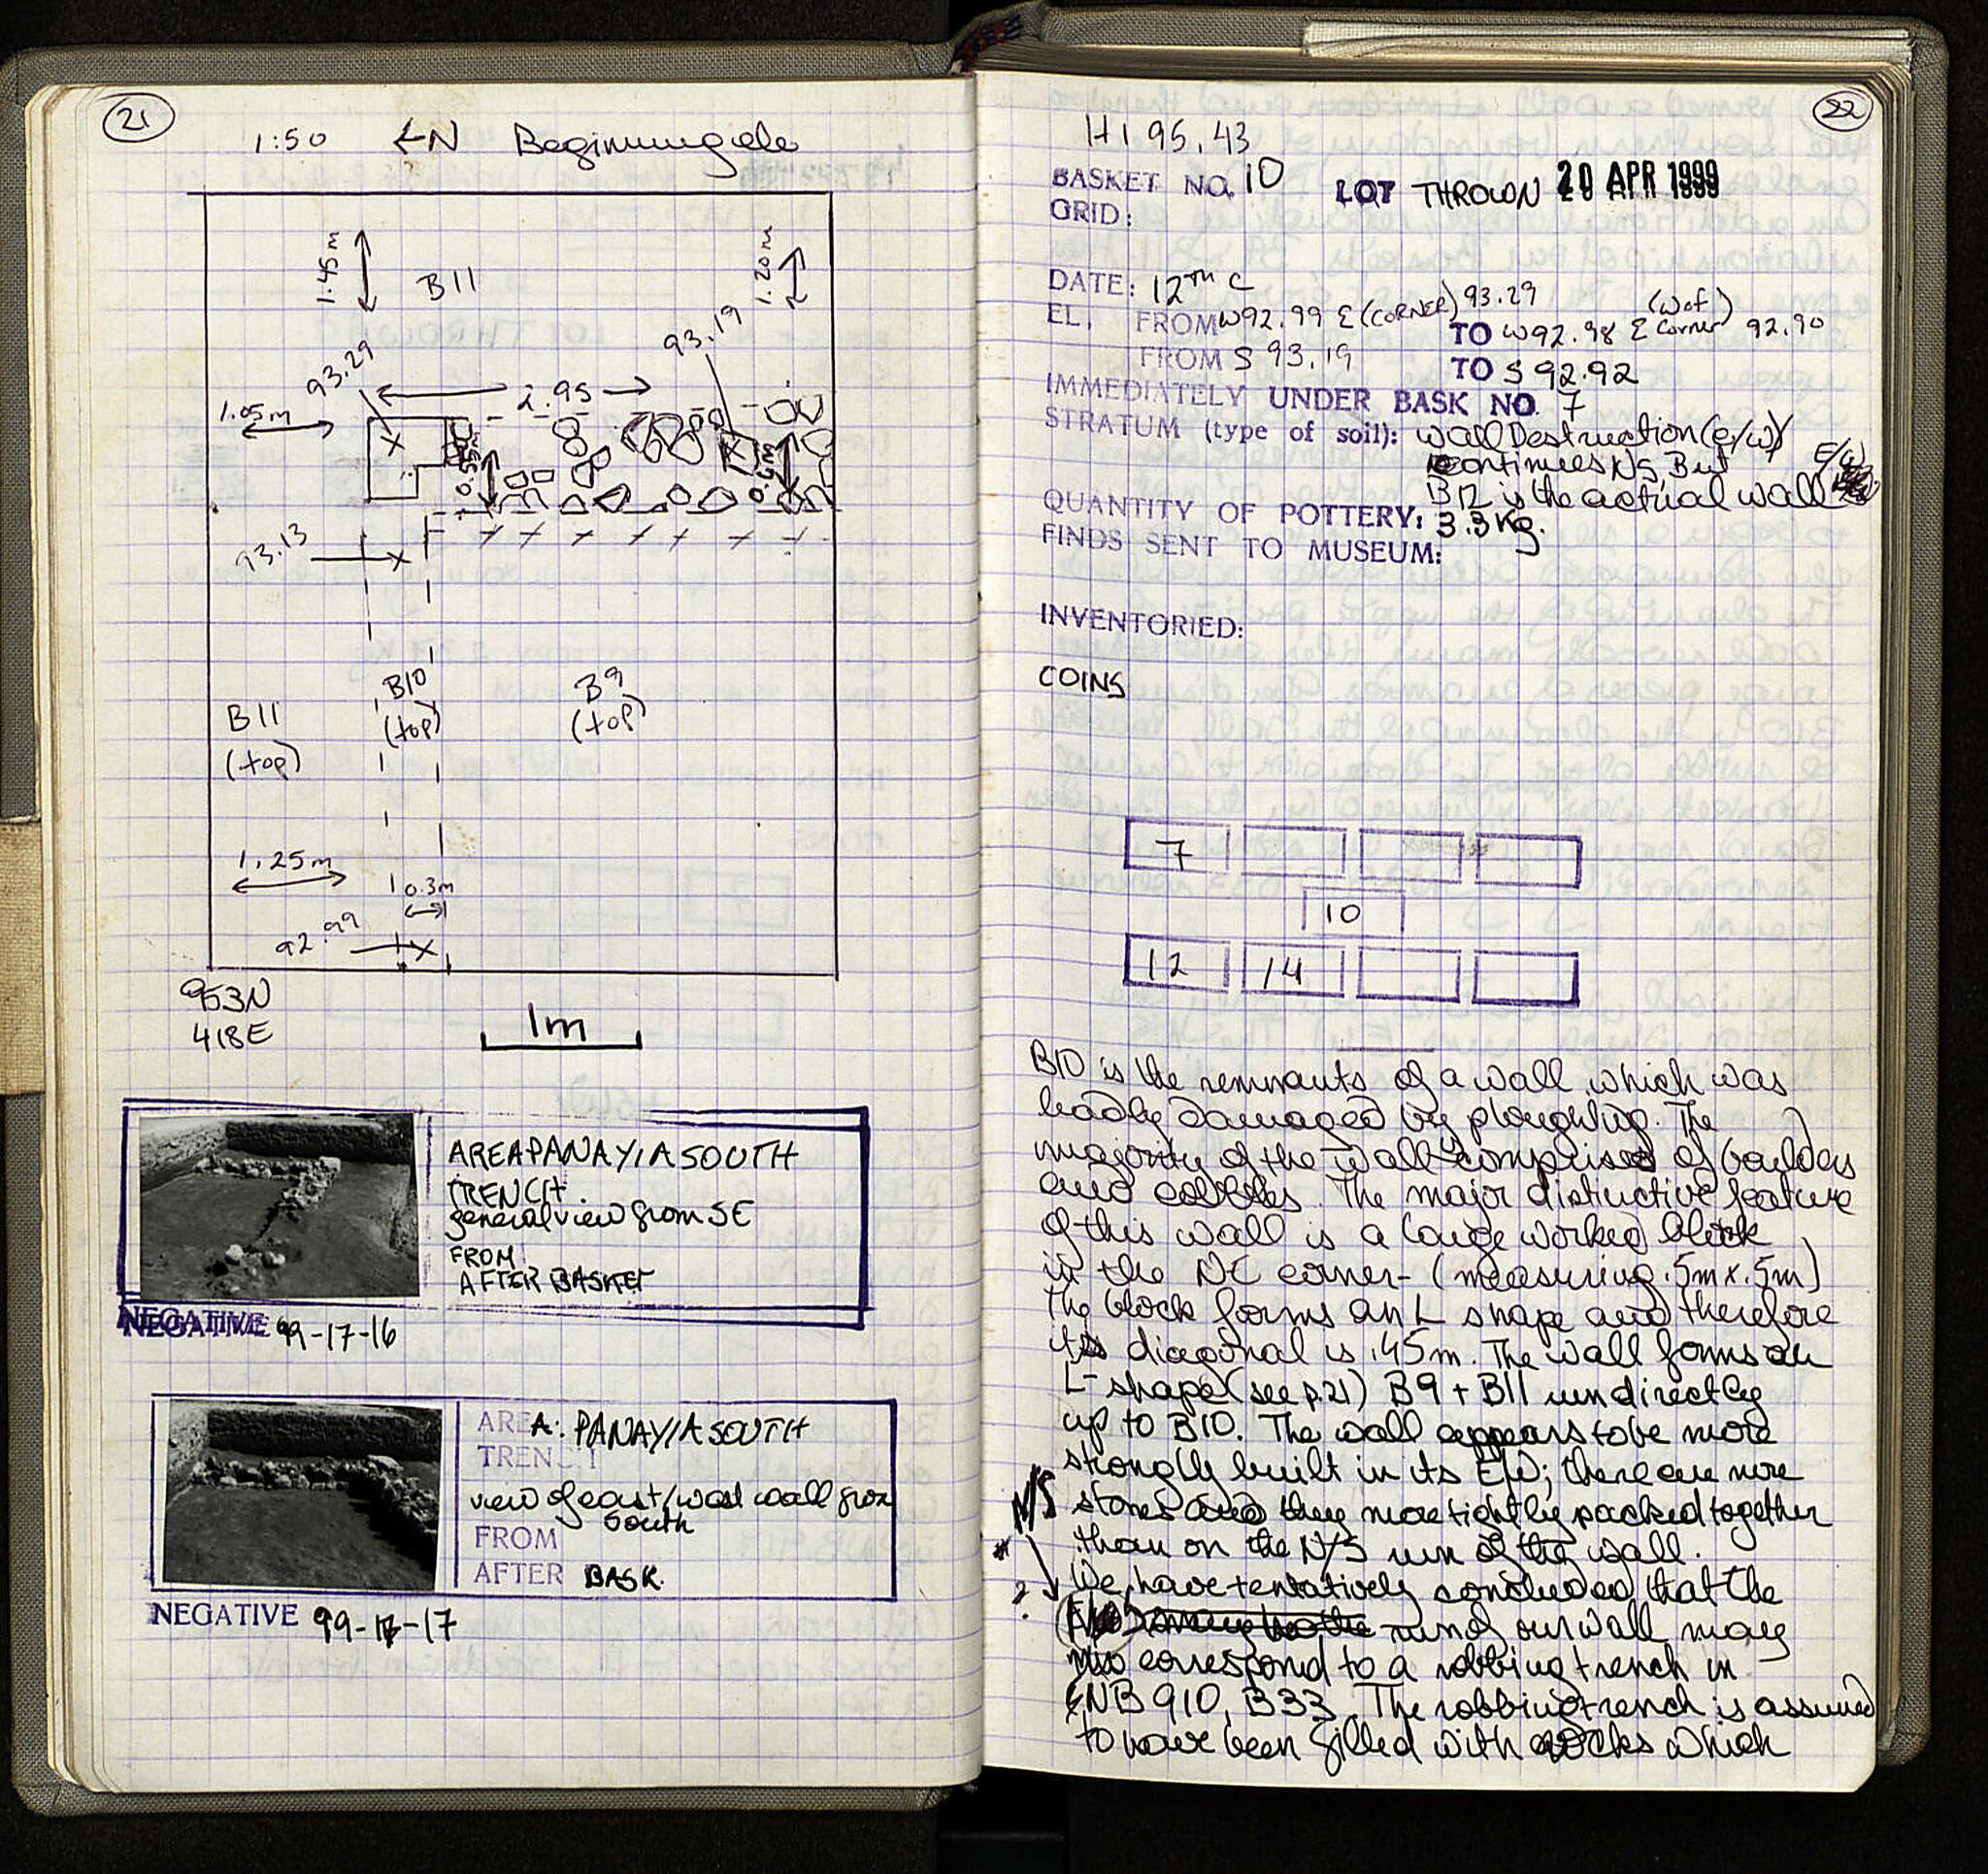 21
1:50 ←N Beginning ele
1.45m
B11
1.20m
93.29
93.19
2.95
1.05m
0.55m
0.4m
93.13
B10
(top)
B9
(top)
B11
(top)
1.25m
0.3m
92.99
953N
418E
1m
AREA PANAYIA SOUTH
TRENCH.
general view from SE
FROM
AFTER BASKET
NEGATIVE 99-17-16
AREA: PANAYIA SOUTH
TRENCH
view of east/west wall from
South
FROM
AFTER BASK.
NEGATIVE 99-17-17
22
H1, 95, 43
BASKET NO. 10 LOT THROWN 20 APR 1999
GRID:
DATE: 12th C
EL. FROM W92.99 E (CORNER) 93.29 TO W92.98 E (W of corner) 92.90
FROM S 93.19 TO S 92.92
IMMEDIATELY UNDER BASK NO. 7
STRATUM (type of soil): wall Destruction (e/w)
continues N/S, But
B12 is the actual wall E/W
QUANTITY OF POTTERY: 3.3 Kg.
FINDS SENT TO MUSEUM:
INVENTORIED:
COINS
7
10
12 14
B10 is the remnants of a wall which was
badly damaged by ploughing. The
majority of the wall comprises of boulders
and cobbles. The major distinctive feature
of this wall is a large worked block
in the NE corner - (measuring .5m x .5m)
The block forms an L shape and therefore
its diagonal is .45m. The wall forms an
L-shape (see p.21) B9 + B11 run directly
up to B10. The wall appears to be more
strongly built in its E/W; there are more
stones and they more tightly packed together
than on the N/S run of the wall.
We have tentatively concluded that the
N/S run of our wall may
correspond to a robbing trench in
NB 910, B33. The robbing trench is assumed
to have been filled with rocks which